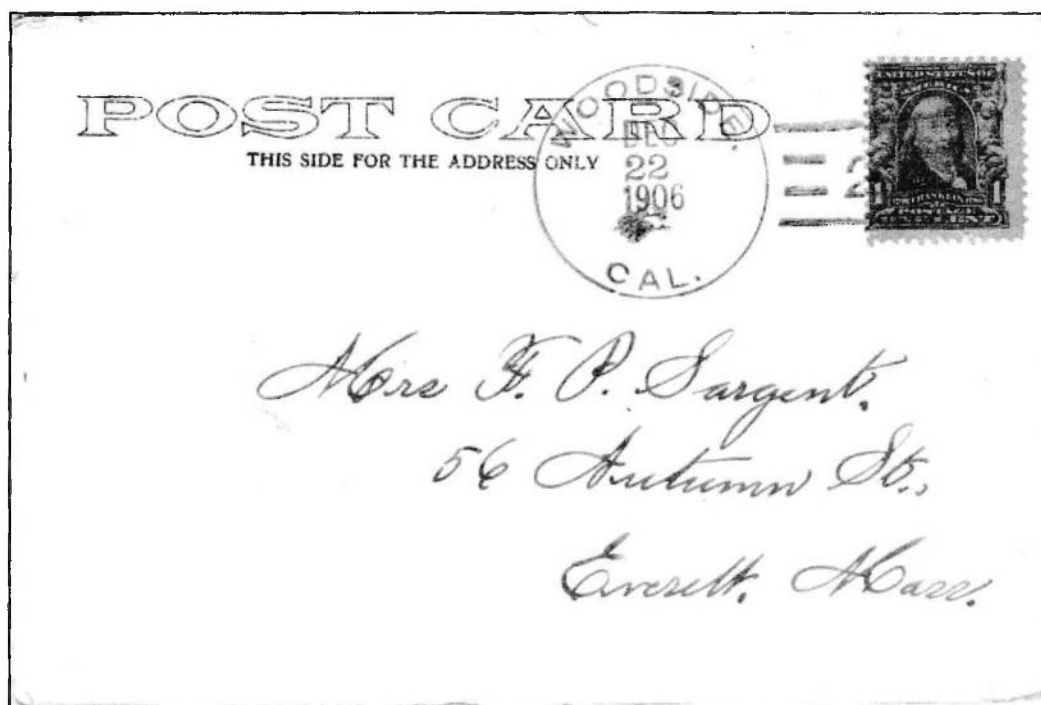 POST CARD
THIS SIDE FOR THE ADDRESS ONLY
WOODSIDE,
DEC
22
1906
CAL.
2
UNITED STATES OF
AMERICA
1 FRANKLIN 1
POSTAGE
ONE CENT
Mrs F. P. Sargent.
56 Autumn St.,
Everett. Mass.